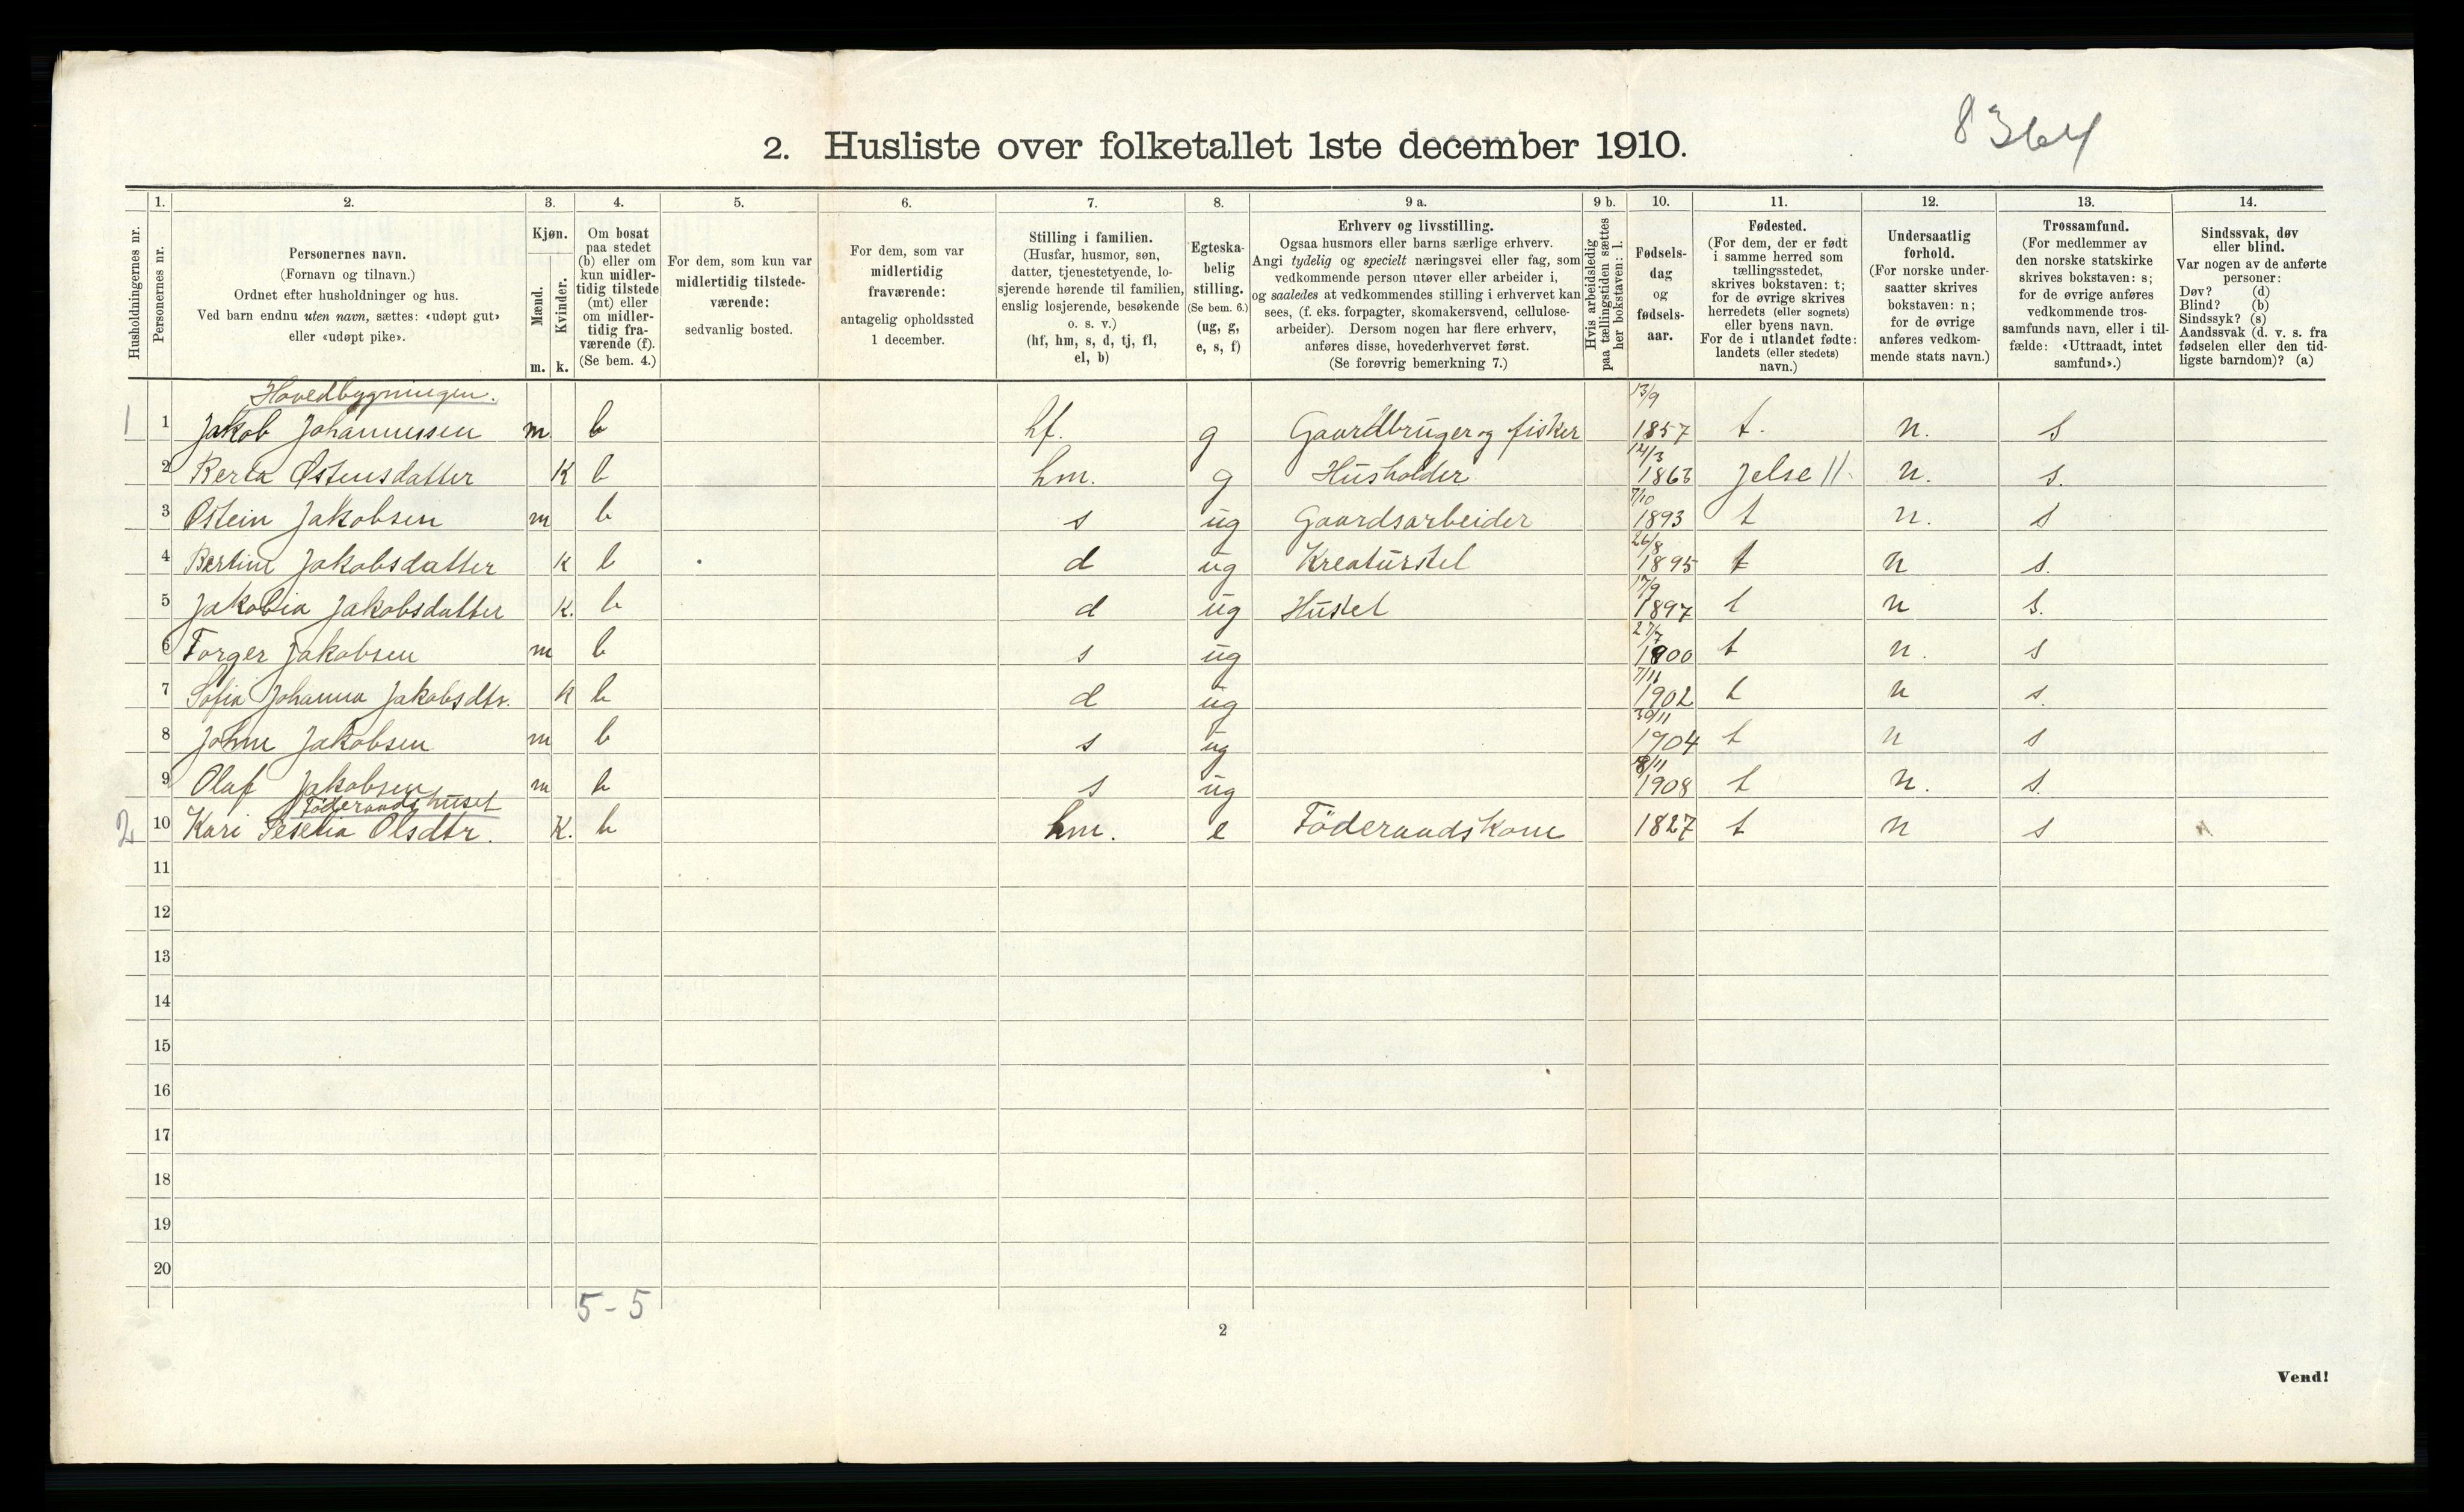 8364
2. Husliste over folketallet 1ste december 1910.
Husholdningernes nr.
1. Personernes nr.
2. Personernes navn. (Fornavn og tilnavn.) Ordnet efter husholdninger og hus. Ved barn endnu uten navn, sættes: «udøpt gut» eller «udøpt pike».
3. Kjøn. Mænd. m. Kvinder. k.
4. Om bosat paa stedet (b) eller om kun midlertidig tilstede (mt) eller om midlertidig fraværende (f). (Se bem. 4.)
5. For dem, som kun var midlertidig tilstedeværende: sedvanlig bosted.
6. For dem, som var midlertidig fraværende: antagelig opholdssted 1 december.
7. Stilling i familien. (Husfar, husmor, søn, datter, tjenestetyende, losjerende hørende til familien, enslig losjerende, besøkende o. s. v.) (hf, hm, s, d, tj, fl, el, b)
8. Egteskabelig stilling. (Se bem. 6.) (ug, g, e, s, f)
9 a. Erhverv og livsstilling. Ogsaa husmors eller barns særlige erhverv. Angi tydelig og specielt næringsvei eller fag, som vedkommende person utøver eller arbeider i, og saaledes at vedkommendes stilling i erhvervet kan sees, (f. eks. forpagter, skomakersvend, cellulosearbeider). Dersom nogen har flere erhverv, anføres disse, hovederhvervet først. (Se forøvrig bemerkning 7.)
9 b. Hvis arbeidsledig paa tællingstiden sættes her bokstaven: l.
10. Fødselsdag og fødselsaar.
11. Fødested. (For dem, der er født i samme herred som tællingsstedet, skrives bokstaven: t; for de øvrige skrives herredets (eller sognets) eller byens navn. For de i utlandet fødte: landets (eller stedets) navn.)
12. Undersaatlig forhold. (For norske undersaatter skrives bokstaven: n; for de øvrige anføres vedkommende stats navn.)
13. Trossamfund. (For medlemmer av den norske statskirke skrives bokstaven: s; for de øvrige anføres vedkommende trossamfunds navn, eller i tilfælde: «Uttraadt, intet samfund».)
14. Sindssvak, døv eller blind. Var nogen av de anførte personer: Døv? (d) Blind? (b) Sindssyk? (s) Aandssvak (d. v. s. fra fødselen eller den tidligste barndom)? (a)
Hovedbygningen.
1 1 Jakob Johannessen m b hf. g Gaardbruger og fisker 13/9 1857 t. n. s
2 Berta Østensdatter K b hm. g Husholder 12/3 1863 Jelse 11 n. s.
3 Østein Jakobsen m b s ug Gaardsarbeider 7/10 1893 t n. s
4 Bertine Jakobsdatter k b d ug Kreaturstel 26/8 1895 t n s.
5 Jakobia Jakobsdatter k. b d ug Hustel 17/9 1897 t n s.
6 Torger Jakobsen m b s ug 27/7 1900 t n. s
7 Sofia Johanna Jakobsdtr. k b d ug 7/11 1902 t n s.
8 Johne Jakobsen m b s ug 30/11 1904 t n s
9 Olaf Jakobsen m b s ug 8/11 1908 t n. s.
Föderaadshuset
2 10 Kari Seselia Olsdtr. K. b hm. e Föderaadskone 1827 t n s
11
12
13
14
15
16
17
18
19
20
5-5
2
Vend!